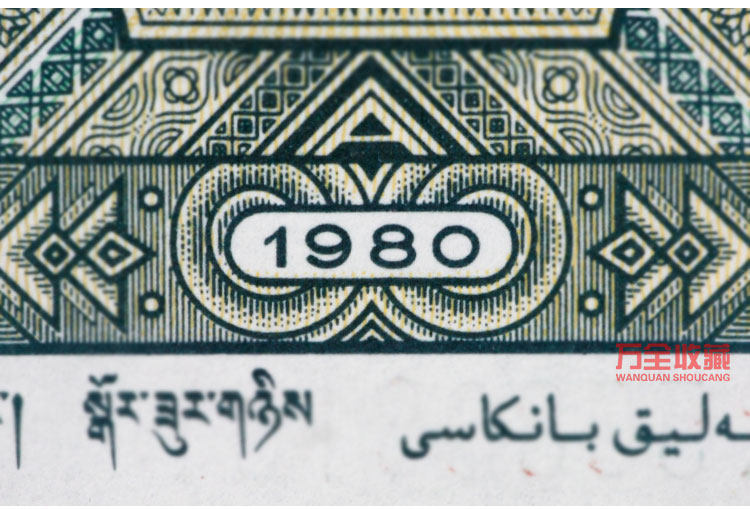 1980
万全收藏
WANQUAN SHOUCANG
སྒོར་ཟུར་གཉིས بانكاسى